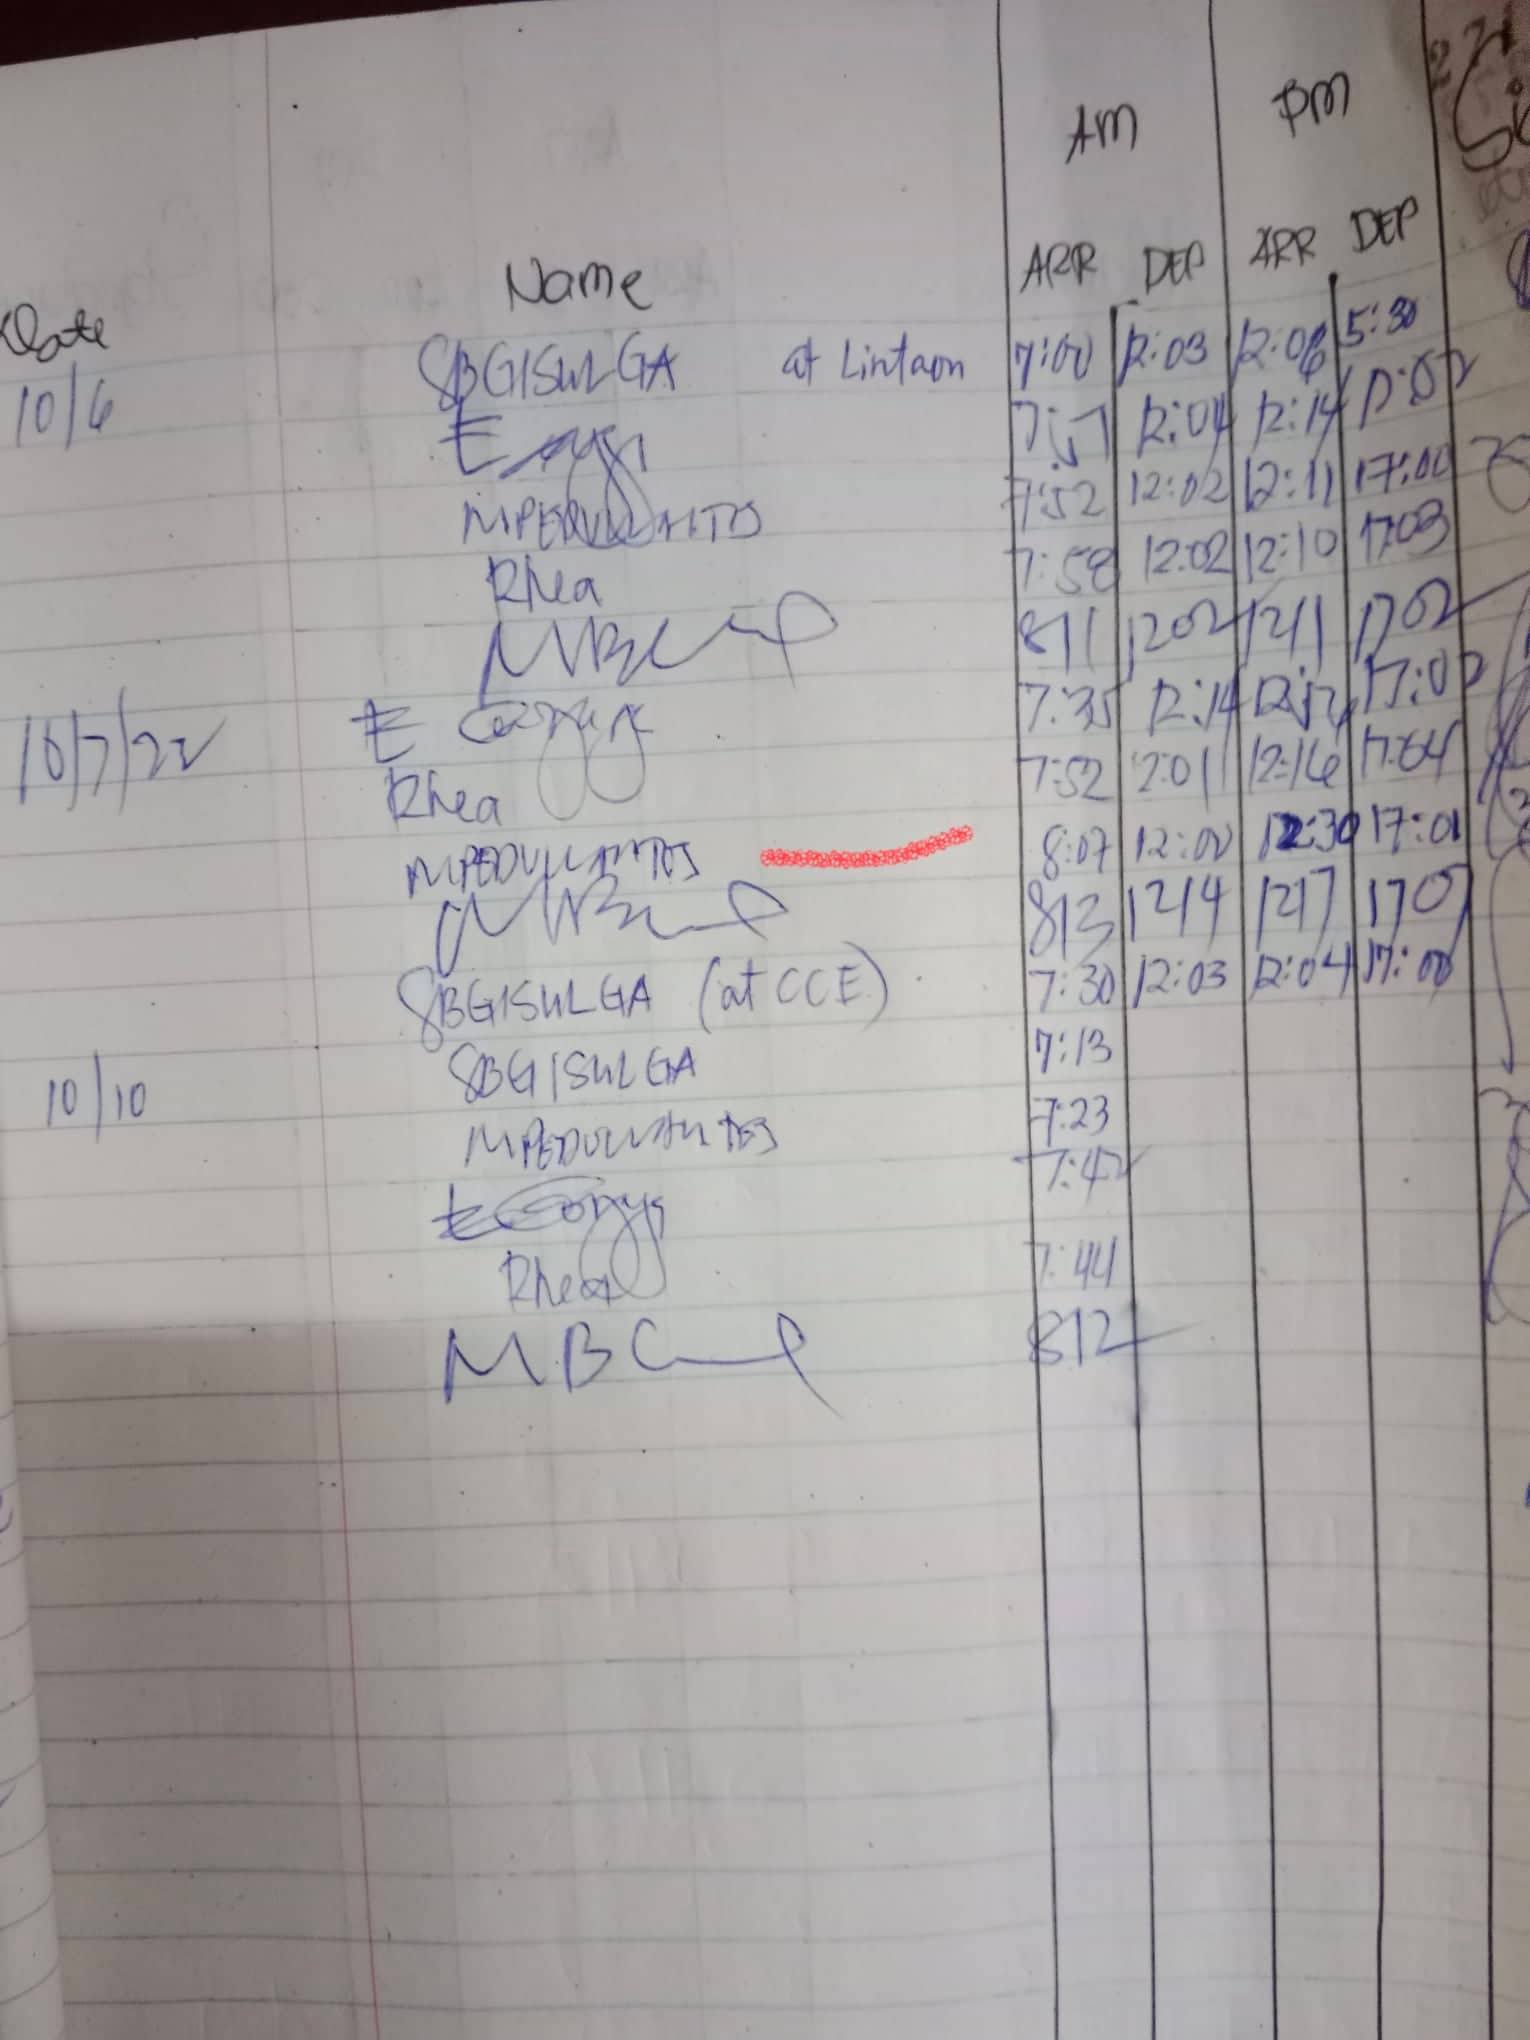 AM PM
Date Name ARR DEP ARR DEP
10/6 SBGISULGA at Lintaon 7:00 12:03 12:06 5:30
12:04 12:14
7:52 12:02 12:11 17:00
Rhea 7:58 12:02 12:10 1703
811 1202 1211 1702
10/7/22 E 7:35 12:14 17:02
Rhea 7:52 12:01 12:16 17:04
MPEDULLANTES 8:07 12:00 12:30 17:01
813 1214 1217
SBGISULGA (at CCE) 7:30 12:03 12:04 17:00
10/10 SBGISULGA 7:13
MPEDULLANTES 7:23
7:42
Rhea 7:44
MBC 812